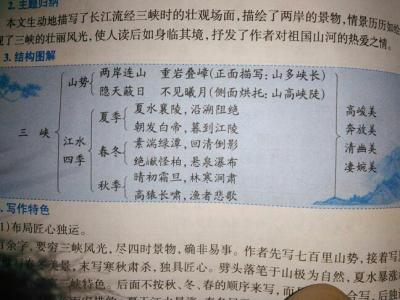 2. 主题归纳
本文生动地描写了长江流经三峡时的壮观场面，描绘了两岸的景物，情景历历如绘
现了三峡的壮丽风光，使人读后如身临其境，抒发了作者对祖国山河的热爱之情。
3. 结构图解
三峡
山势
两岸连山 重岩叠嶂(正面描写：山多峡长)
隐天蔽日 不见曦月(侧面烘托：山高峡陡)
江水四季
夏季
夏水襄陵，沿溯阻绝
朝发白帝，暮到江陵
春冬
素湍绿潭，回清倒影
绝巘怪柏，悬泉瀑布
秋季
晴初霜旦，林寒涧肃
高猿长啸，渔者悲歌
高峻美
奔放美
清幽美
凄婉美
写作特色
1)布局匠心独运。
百余字，要穷三峡风光，尽四时景物，确非易事。作者先写七百里山势，接着写
春冬美景，末写寒秋肃杀，独具匠心。劈头落笔于山极为自然，夏水暴涨
峡一特色。后面不按秋、冬、春的顺序来写，而是